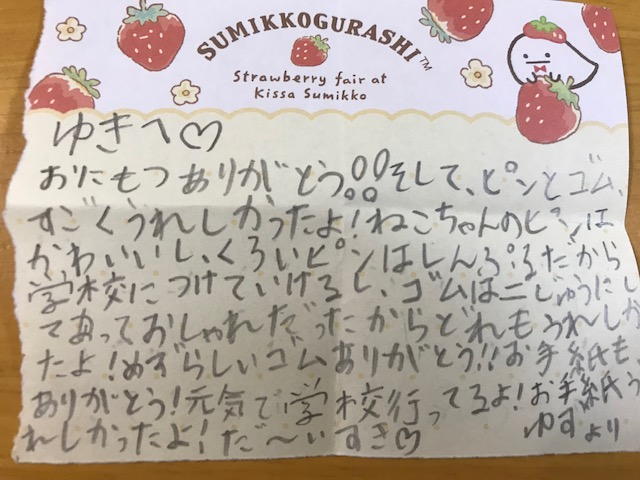 SUMIKKOGURASHI™
Strawberry fair at
Kissa Sumikko
ゆきへ♡
おにもつありがとう!!そして、ピンとゴム、
すごくうれしかったよ!ねこちゃんのピンは
かわいいし、くろいピンはしんぷるだから
学校につけていけるし、ゴムは二じゅうにし
てあっておしゃれだったからどれもうれしか
たよ!めずらしいゴムありがとう!!お手紙も
ありがとう!元気で学校行ってるよ!お手紙う
れしかったよ!だ～いすき♡ ゆずより